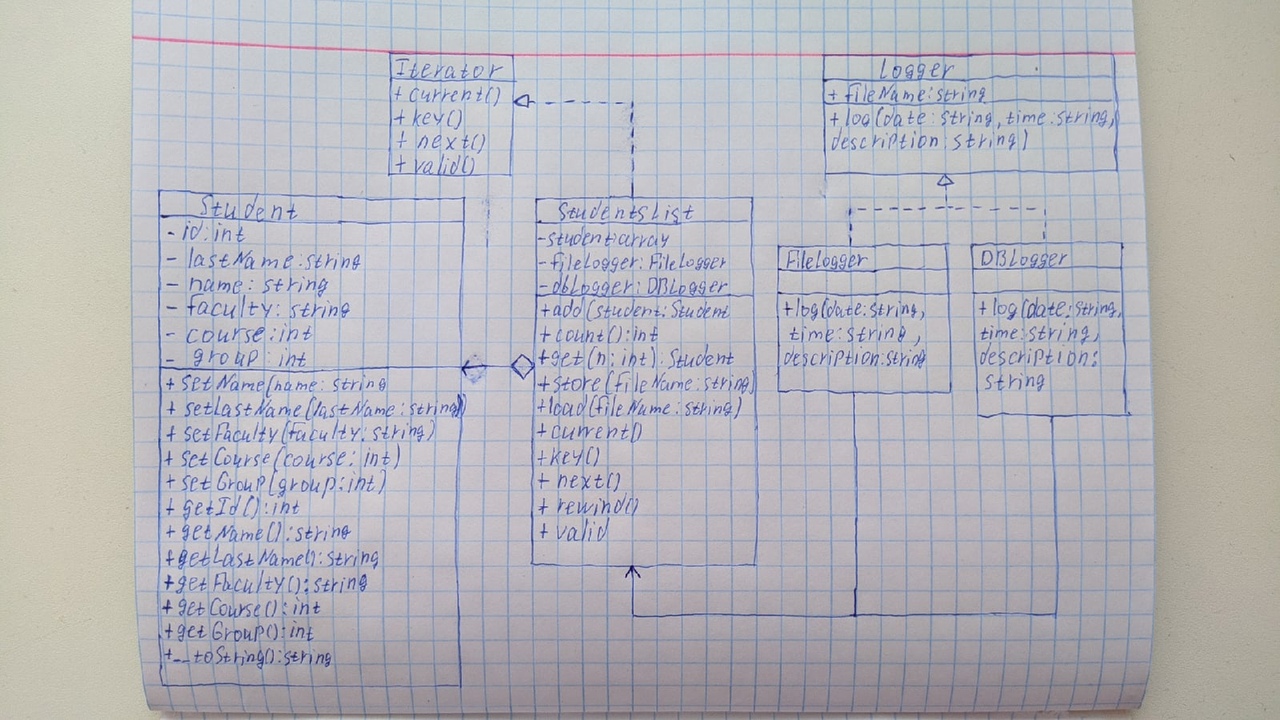 Iterator
+ current()
+ key()
+ next()
+ valid()
Logger
+ fileName:string
+ log(date:string, time:string,
description:string)
Student
- id:int
- lastName:string
- name:string
- faculty:string
- course:int
- group:int
+ setName(name:string
+ setLastName(lastName:string)
+ setFaculty(faculty:string)
+ setCourse(course:int)
+ setGroup(group:int)
+ getId():int
+ getName():string
+ getLastName():string
+ getFaculty():string
+ getCourse():int
+ getGroup():int
+__toString():string
StudentsList
-student:array
- fileLogger:FileLogger
- dbLogger:DBLogger
+add(student:Student
+ count():int
+get(n:int):Student
+store(fileName:string)
+load(fileName:string)
+current()
+key()
+ next()
+ rewind()
+ valid
FileLogger
+log(date:string,
time:string,
description:string
DBLogger
+log(date:string,
time:string,
description:
string